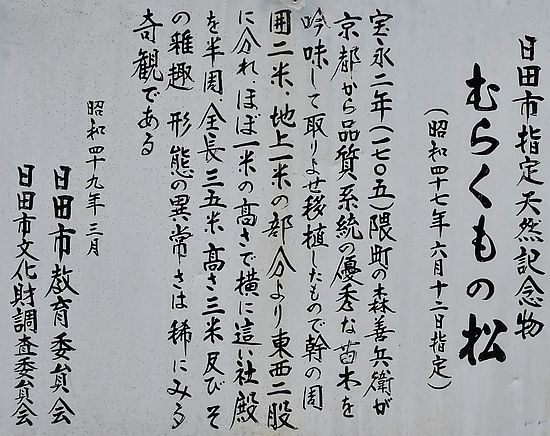 日田市指定天然記念物
むらくもの松
(昭和四十七年六月十二日指定)
宝永二年(一七〇五)隈町の森善兵衛が
京都から品質系統の優秀な苗木を
吟味して取りよせ移植したもので幹の周
囲二米・地上一米の部分より東西二股
に分れ、ほぼ一米の高さで横に這い社殿
を半周 全長三五米 高さ三米及びそ
の雅趣 形態の異常さは稀にみる
奇観である
昭和四十九年三月
日田市教育委員会
日田市文化財調査委員会